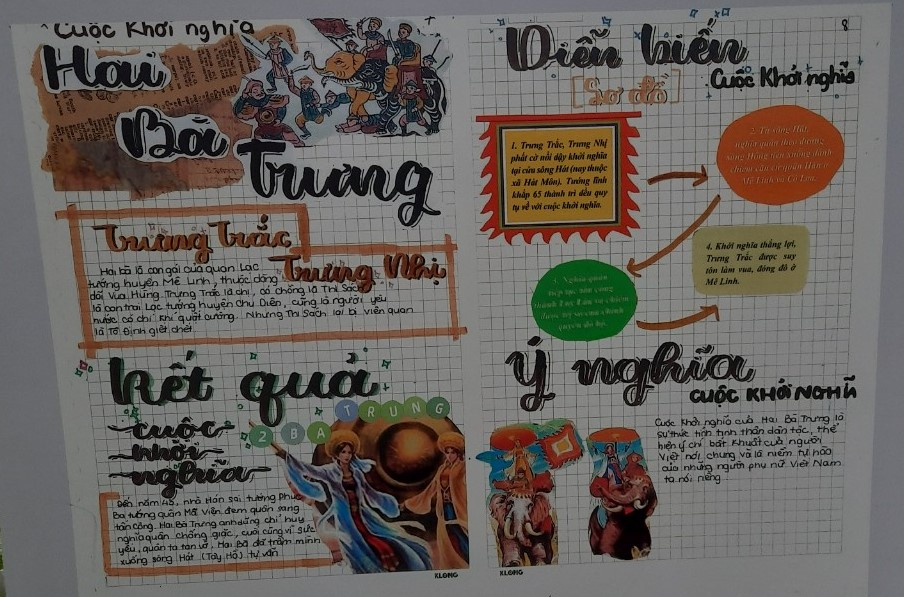 Cuộc Khởi nghĩa
Hai
Bà
Trưng
Trưng Trắc
Trưng Nhị
Hai bà là con gái của quan Lạc
tướng huyện Mê Linh, thuộc dòng
dõi Vua Hùng. Trưng Trắc là chị, có chồng là Thi Sách
là con trai Lạc tướng huyện Chu Diên, cũng là người yêu
nước có chí khí quật cường. Nhưng Thi Sách lại bị viên quan
là Tô Định giết chết.
Kết quả
cuộc
khởi
nghĩa
2 BA TRUNG
Đến năm 43, nhà Hán sai tướng Phục
Ba tướng quân Mã Viện đem quân sang
tấn công. Hai Bà Trưng anh dũng chỉ huy
nghĩa quân chống giặc, cuối cùng vì sức
yếu, quân ta tan vỡ, Hai Bà đã trầm mình
xuống sông Hát (Tây Hồ) tự vẫn
KLONG
8
Diễn biến
Cuộc Khởi nghĩa
[Sơ đồ]
1. Trưng Trắc, Trưng Nhị
phất cờ nổi dậy khởi nghĩa
tại cửa sông Hát (nay thuộc
xã Hát Môn). Tướng lĩnh
khắp 65 thành trì đều quy
tụ về với cuộc khởi nghĩa.
2. Từ sông Hát,
nghĩa quân theo đường
sông Hồng tiến xuống đánh
chiếm căn cứ quân Hán ở
Mê Linh và Cổ Loa.
3. Nghĩa quân
tiếp tục tấn công
thành Luy Lâu và chiếm
được trị sở của chính
quyền đô hộ.
4. Khởi nghĩa thắng lợi,
Trưng Trắc được suy
tôn làm vua, đóng đô ở
Mê Linh.
Ý nghĩa
CUỘC KHỞI NGHĨA
Cuộc Khởi nghĩa của Hai Bà Trưng là
sự thức tỉnh tinh thần dân tộc, thể
hiện ý chí bất khuất của người
Việt nói chung và là niềm tự hào
của những người phụ nữ Việt Nam
ta nói riêng
KLONG